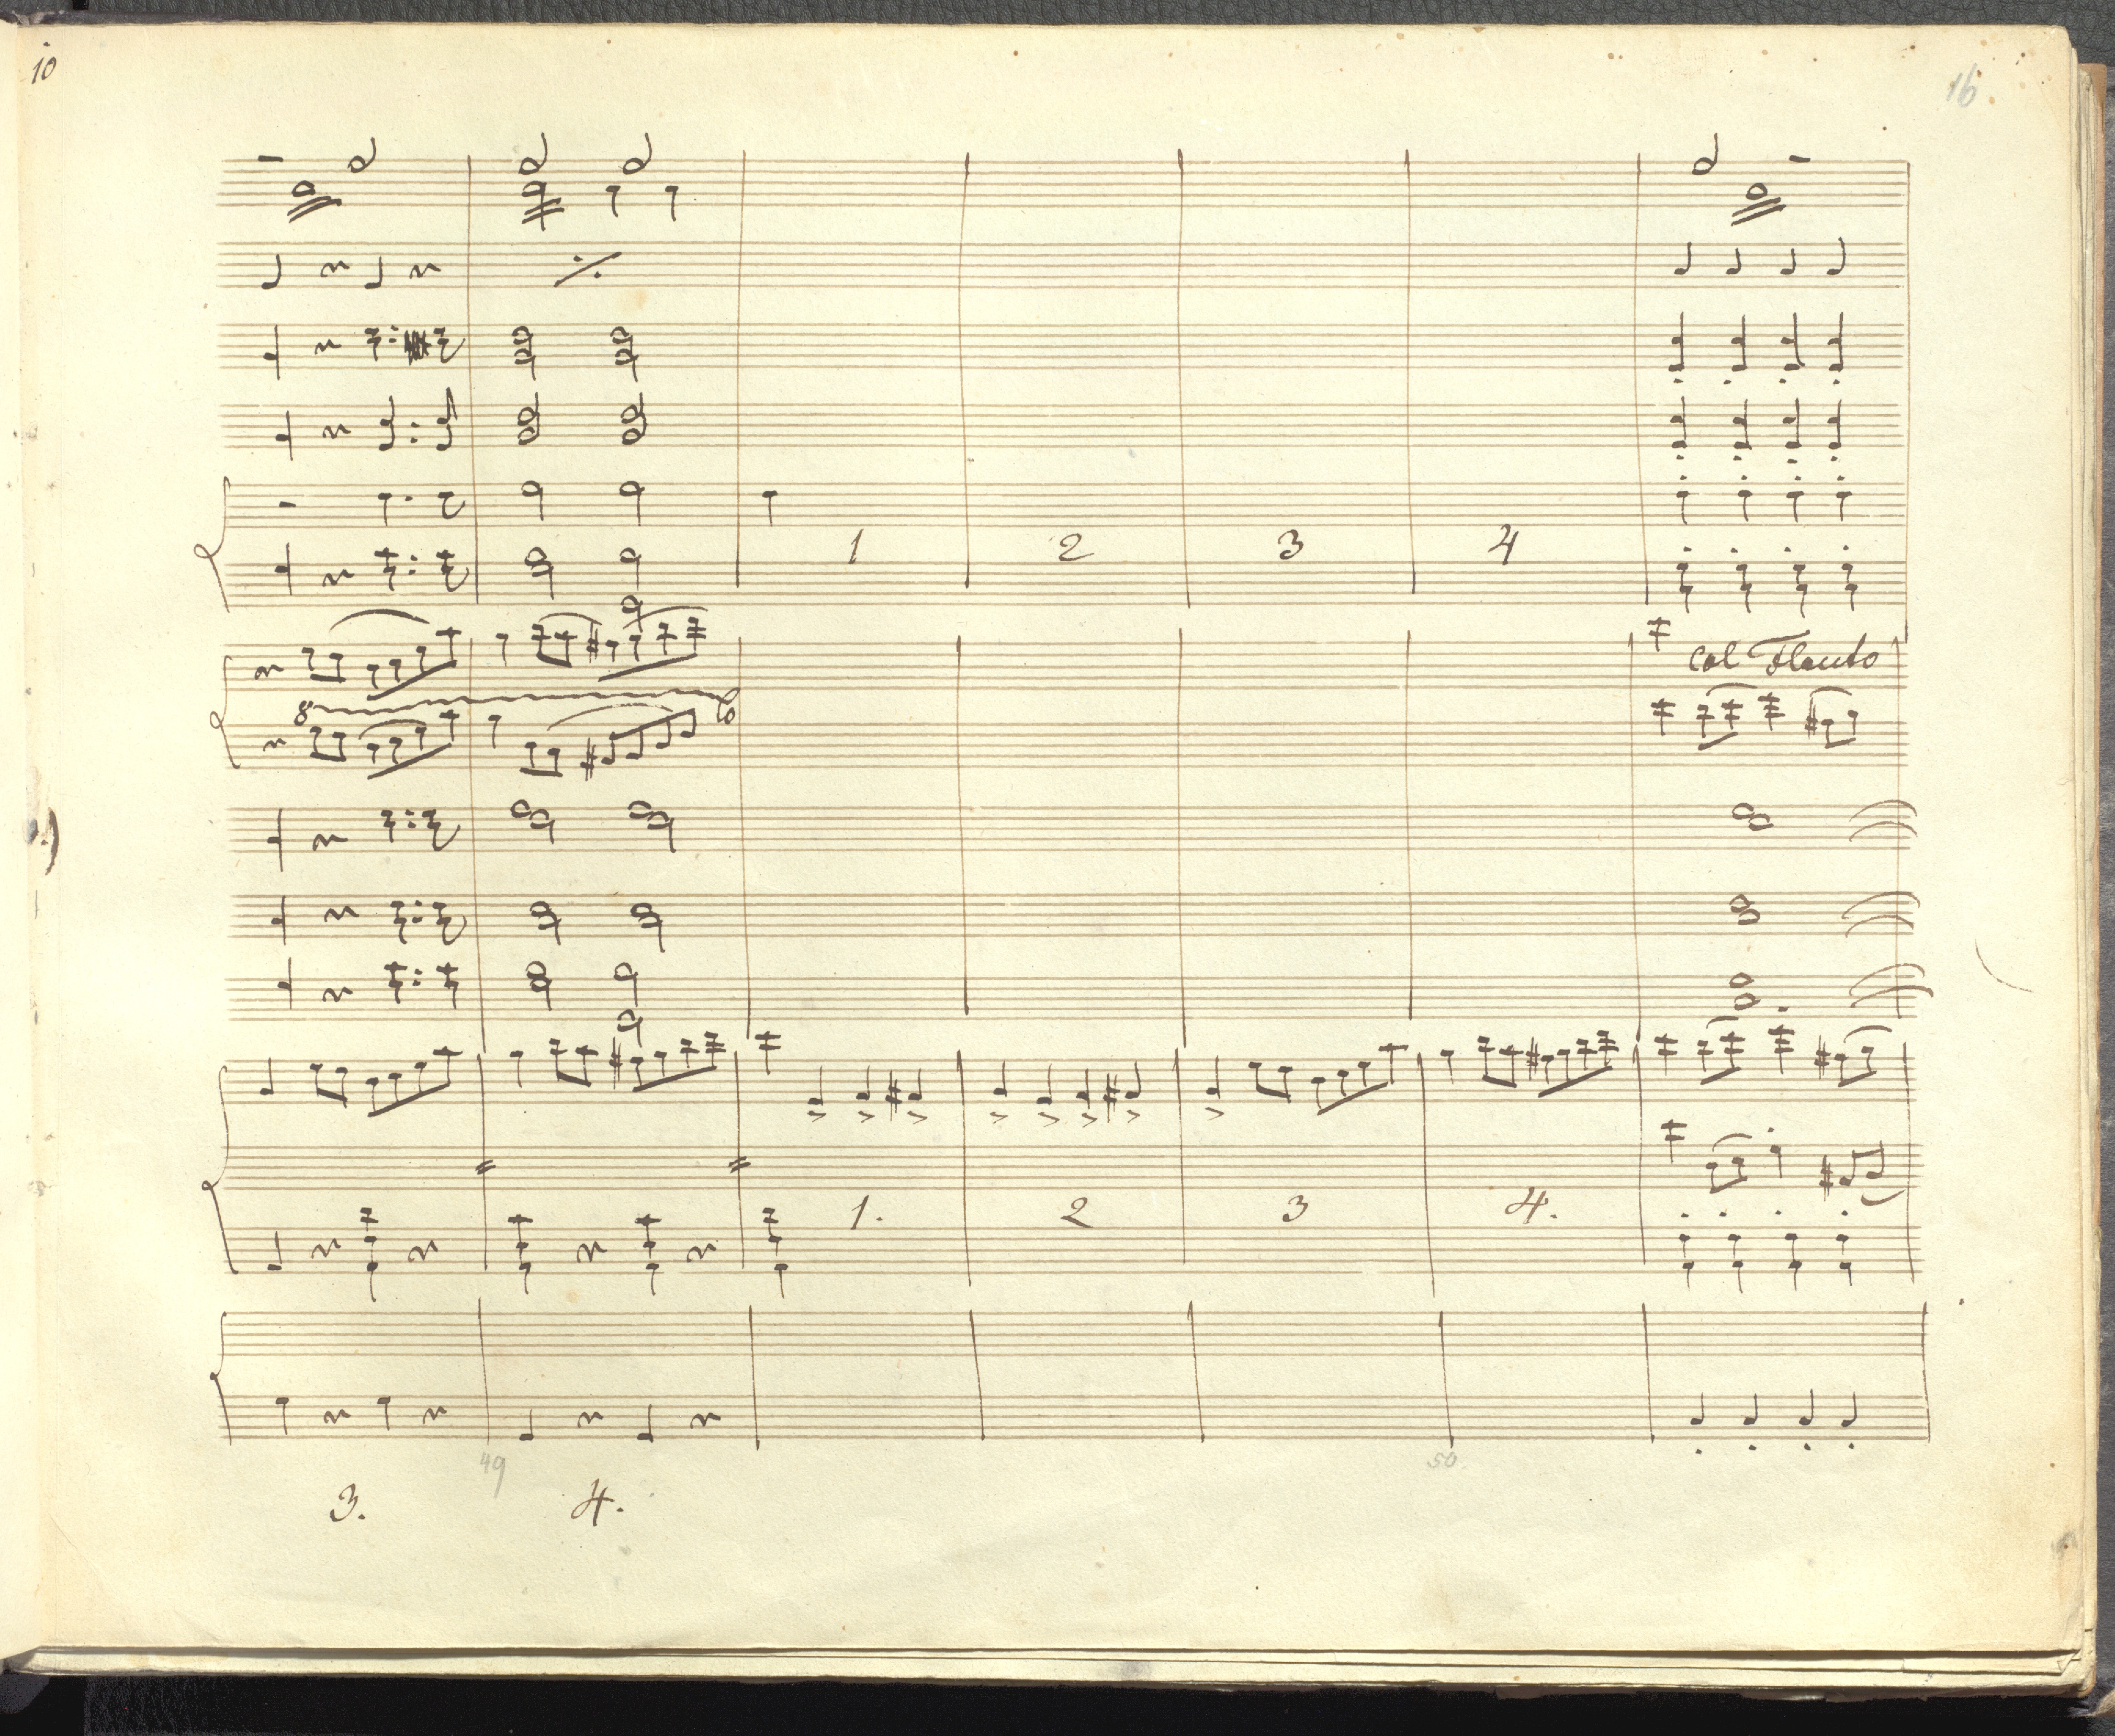 10
16
1 2 3 4
col Flauto
8
1. 2 3 4.
49 50
3. 4.